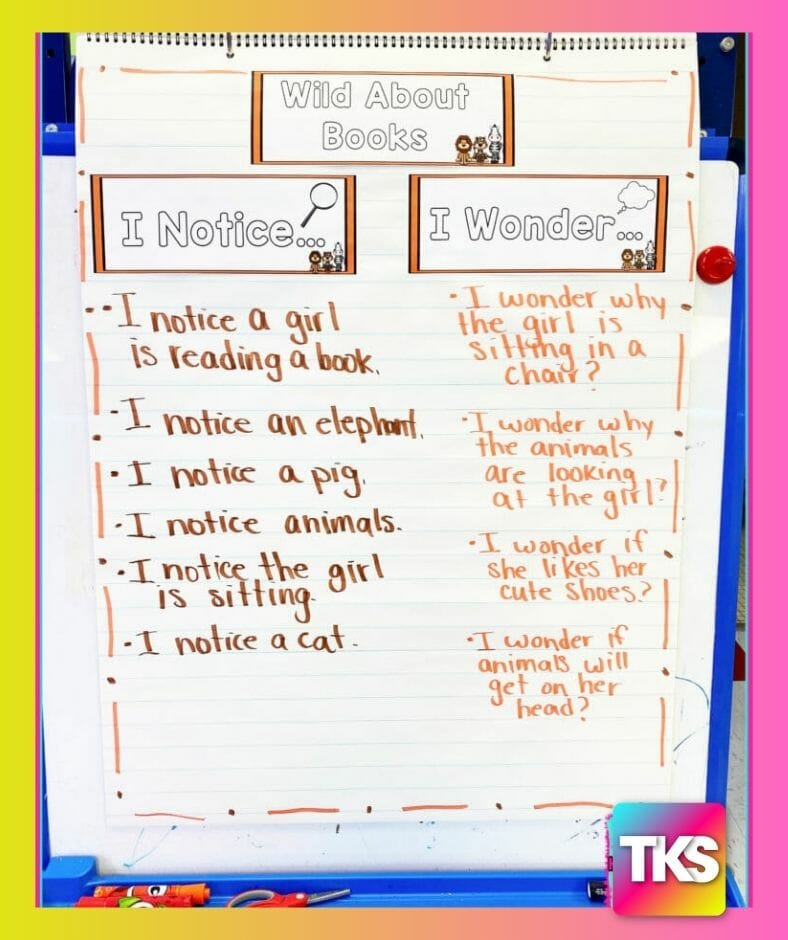 Wild About
Books
I Notice...
I Wonder...
· I notice a girl
is reading a book.
· I notice an elephant.
· I notice a pig.
· I notice animals.
· I notice the girl
is sitting.
· I notice a cat.
· I wonder why
the girl is
sitting in a
chair?
· I wonder why
the animals
are looking
at the girl?
· I wonder if
she likes her
cute shoes?
· I wonder if
animals will
get on her
head?
TKS